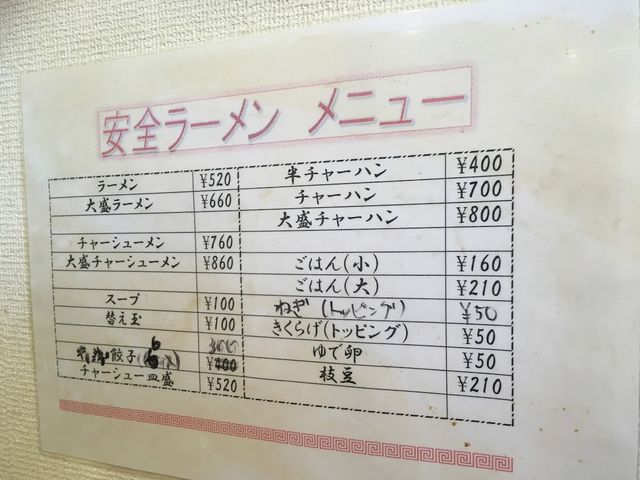 安全ラーメン メニュー
ラーメン ¥520
大盛ラーメン ¥660
チャーシューメン ¥760
大盛チャーシューメン ¥860
スープ ¥100
替え玉 ¥100
餃子(6 ¥400
チャーシュー皿盛 ¥520
半チャーハン ¥400
チャーハン ¥700
大盛チャーハン ¥800
ごはん(小) ¥160
ごはん(大) ¥210
ねぎ(トッピング) ¥50
きくらげ(トッピング) ¥50
ゆで卵 ¥50
枝豆 ¥210